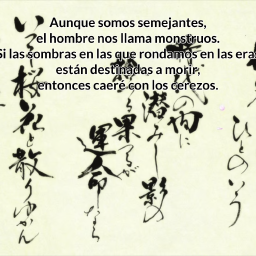 Aunque somos semejantes,
el hombre nos llama monstruos.
Si las sombras en las que rondamos en las era
están destinadas a morir,
entonces caeré con los cerezos.
ひとのいう
の間に
潜みし影の
果つるが
運命なら
いざ桜花と散りゆかん